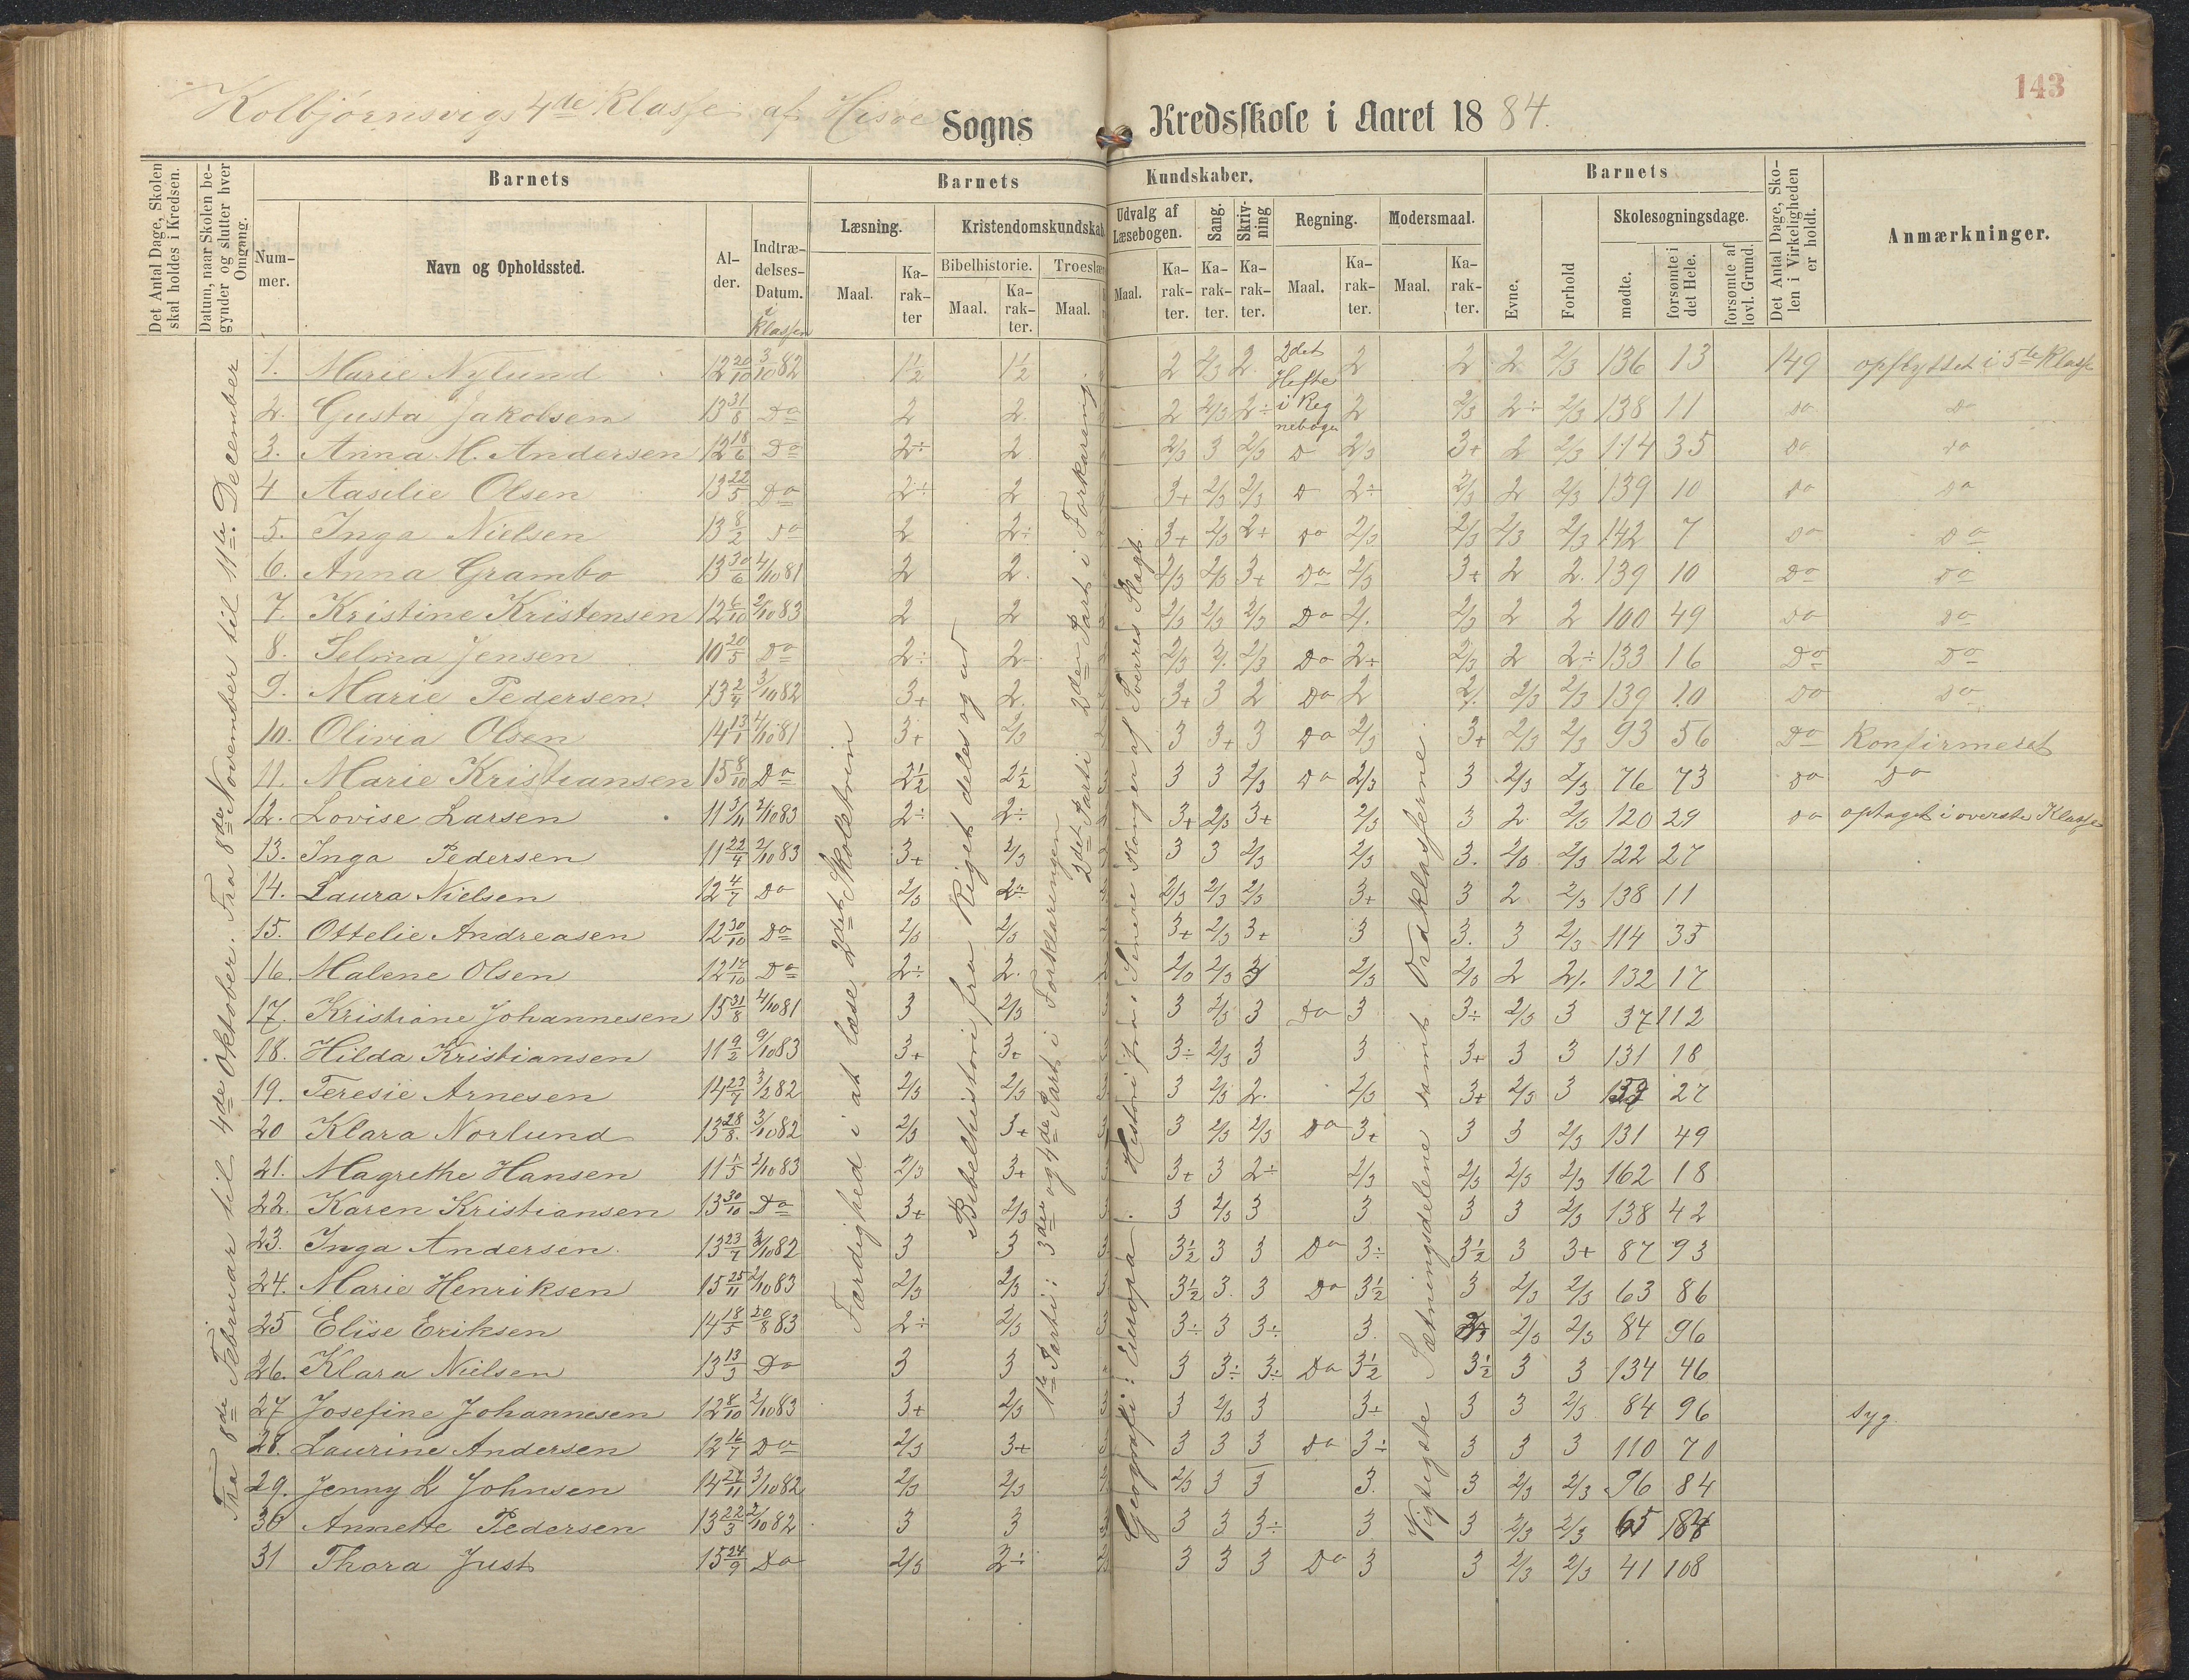 143
Kolbjørnsvigs 4de Klasse af Hisøe Sogns Kredsskole i Aaret 1884.
Det Antal Dage, Skolen skal holdes i Kredsen.
Datum, naar Skolen begynder og slutter hver Omgang.
Barnets
Nummer.
Navn og Opholdssted.
Alder.
Indtrædelses-Datum.
i Klassen
Barnets Kundskaber.
Læsning.
Maal.
Karakter
Kristendomskundskab
Bibelhistorie.
Maal.
Karakter.
Troeslære
Maal.
Udvalg af Læsebogen.
Maal.
Karakter.
Sang.
Karakter.
Skrivning
Karakter.
Regning.
Maal.
Karakter.
Modersmaal.
Maal.
Karakter.
Barnets
Evne.
Forhold
Skolesøgningsdage.
mødte.
forsømte i det Hele.
forsømte af lovl. Grund.
Det Antal Dage, Skolen i Virkeligheden er holdt.
Anmærkninger.
Fra 8de Februar til 4de Oktober. Fra 8de November til 11te December
Færdighed i at læse 2det Skoletrin
Bibelhistorie fra Riget deles og ud
1te Parti: 3die og 4de Part i Forklaringen
2det Parti 2den Part i Forklaring.
Geografi: Europa. Historie fra: Senere Konger af Sverres Slægt.
Vigtigste Sætningsdelene samt Ordklasserne.
2det Hefte i Regnebogen
1. Marie Nylund 12 20/10 3/10 82 1½ 1½ 2 2/3 2. 2 2 2 2/3 136 13 149 opflyttet i 5te Klasse
2. Gusta Jakobsen 13 31/8 Do 2 2. 2 2/3 2÷ 2 2/3 2÷ 2/3 138 11 Do Do
3. Anna M. Andersen 12 18/6 Do 2÷ 2 2/3 3 2/3 D 2/3 3+ 2 2/3 114 35 Do Do
4 Aasilie Olsen 13 22/5 Do 2÷ 2 3+ 2/3 2/3 D 2÷ 2/3 2 2/3 139 10 Do Do
5. Inga Nielsen 13 8/2 Do 2 2÷ 3+ 2/3 2+ Do 2/3 2/3 2/3 2/3 142 7 Do Do
6. Anna Grambo 13 30/6 4/10 81 2 2. 2/3 2/3 3+ Do 2/3 3+ 2 2. 139 10 Do Do
7. Kristine Kristensen 12 6/10 2/10 83 2 2 2/3 2/3 2/3 Do 2/3 2 2 100 49 Do Do
8. Selma Jensen 10 20/5 Do 2÷ 2 2/3 2/3 Do 2÷ 2/3 2 2÷ 133 16 Do Do
9. Marie Pedersen. 13 2/4 3/10 82 3+ 2. 3+ 3 2 Do 2 2/3 2/3 139 10 Do Do
10. Olivia Olsen 14 13/1 4/10 81 3+ 2/3 3 3+ 3 Do 2/3 3+ 2/3 2/3 93 56 Do Konfirmeret
11. Marie Kristiansen 15 8/10 Do 2½ 2½ 3 3 2/3 Do 2/3 3 2/3 2/3 76 73 Do Do
12. Lovise Larsen 11 3/11 2/10 83 2÷ 2÷ 3+ 2/3 3+ 2/3 3 2 2/3 120 29 Do optaget i øverste Klasse
13. Inga Pedersen 11 22/4 2/10 83 3+ 2/3 3 3 2/3 2/3 3. 2/3 2/3 122 27
14. Laura Nielsen 12 4/7 Do 2/3 2÷ 2/3 2/3 2/3 3+ 3 2 2/3 138 11
15. Ottelie Andreasen 12 30/10 Do 2/3 2/3 3+ 2/3 3+ 3 3. 3 2/3 114 35
16. Malene Olsen 12 17/10 Do 2÷ 2. 2/3 2/3 3 2/3 2/3 2 132 17
17. Kristiane Johannesen 15 31/8 4/10 81 3 2/3 3 2/3 3 Do 3 3÷ 2/3 3 37 112
18. Hilda Kristiansen 11 9/2 9/10 83 3+ 3+ 3÷ 2/3 3 3 3+ 3 3 131 18
19. Teresie Arnesen 14 23/7 3/2 82 2/3 2/3 3 2/3 2. 2/3 3+ 2/3 3 27
20 Klara Norlund 13 28/8. 3/10 82 2/3 3+ 3 2/3 2/3 Do 3+ 3 3 2/3 131 49
21. Magrethe Hansen 11 1/5 2/10 83 2/3 3+ 3+ 3 2÷ 2/3 2/3 2/3 2/3 162 18
22. Karen Kristiansen 13 30/10 Do 3+ 2/3 3 2/3 3 3 3 3 2/3 138 42
23. Inga Andersen. 13 23/7 3/10 82 3 3 3½ 3 3 Do 3÷ 3½ 3 3+ 87 93
24. Marie Henriksen 15 25/11 2/10 83 2/3 2/3 3½ 3. 3 Do 3½ 3 2/3 2/3 63 86
25 Elise Eriksen 14 18/5 20/8 83 2÷ 2/3 3÷ 3 3÷ 3. 2/3 2/3 84 96
26. Klara Nielsen 13 13/3 Do 3 3 3 3÷ 3÷ Do 3½ 3½ 3 3 134 46
27 Josefine Johannesen 12 8/10 2/10 83 3+ 2/3 3 2/3 3 3÷ 3 3 2/3 84 96 syg.
28. Laurine Andersen 12 16/7 Do 2/3 3+ 3 3 3 Do 3÷ 3 3 3 110 70
29. Jenny L Johnsen 14 27/11 3/10 82 2/3 2/3 2/3 3 3 3. 3 2/3 2/3 96 84
30 Annette Pedersen 13 22/3 2/10 82 3 3 3 3 3÷ 3 3 2/3 2/3 65 184
31 Thora Just 15 24/9 Do 2/3 2÷ 3 3 3 Do 3 3 2/3 2/3 41 108